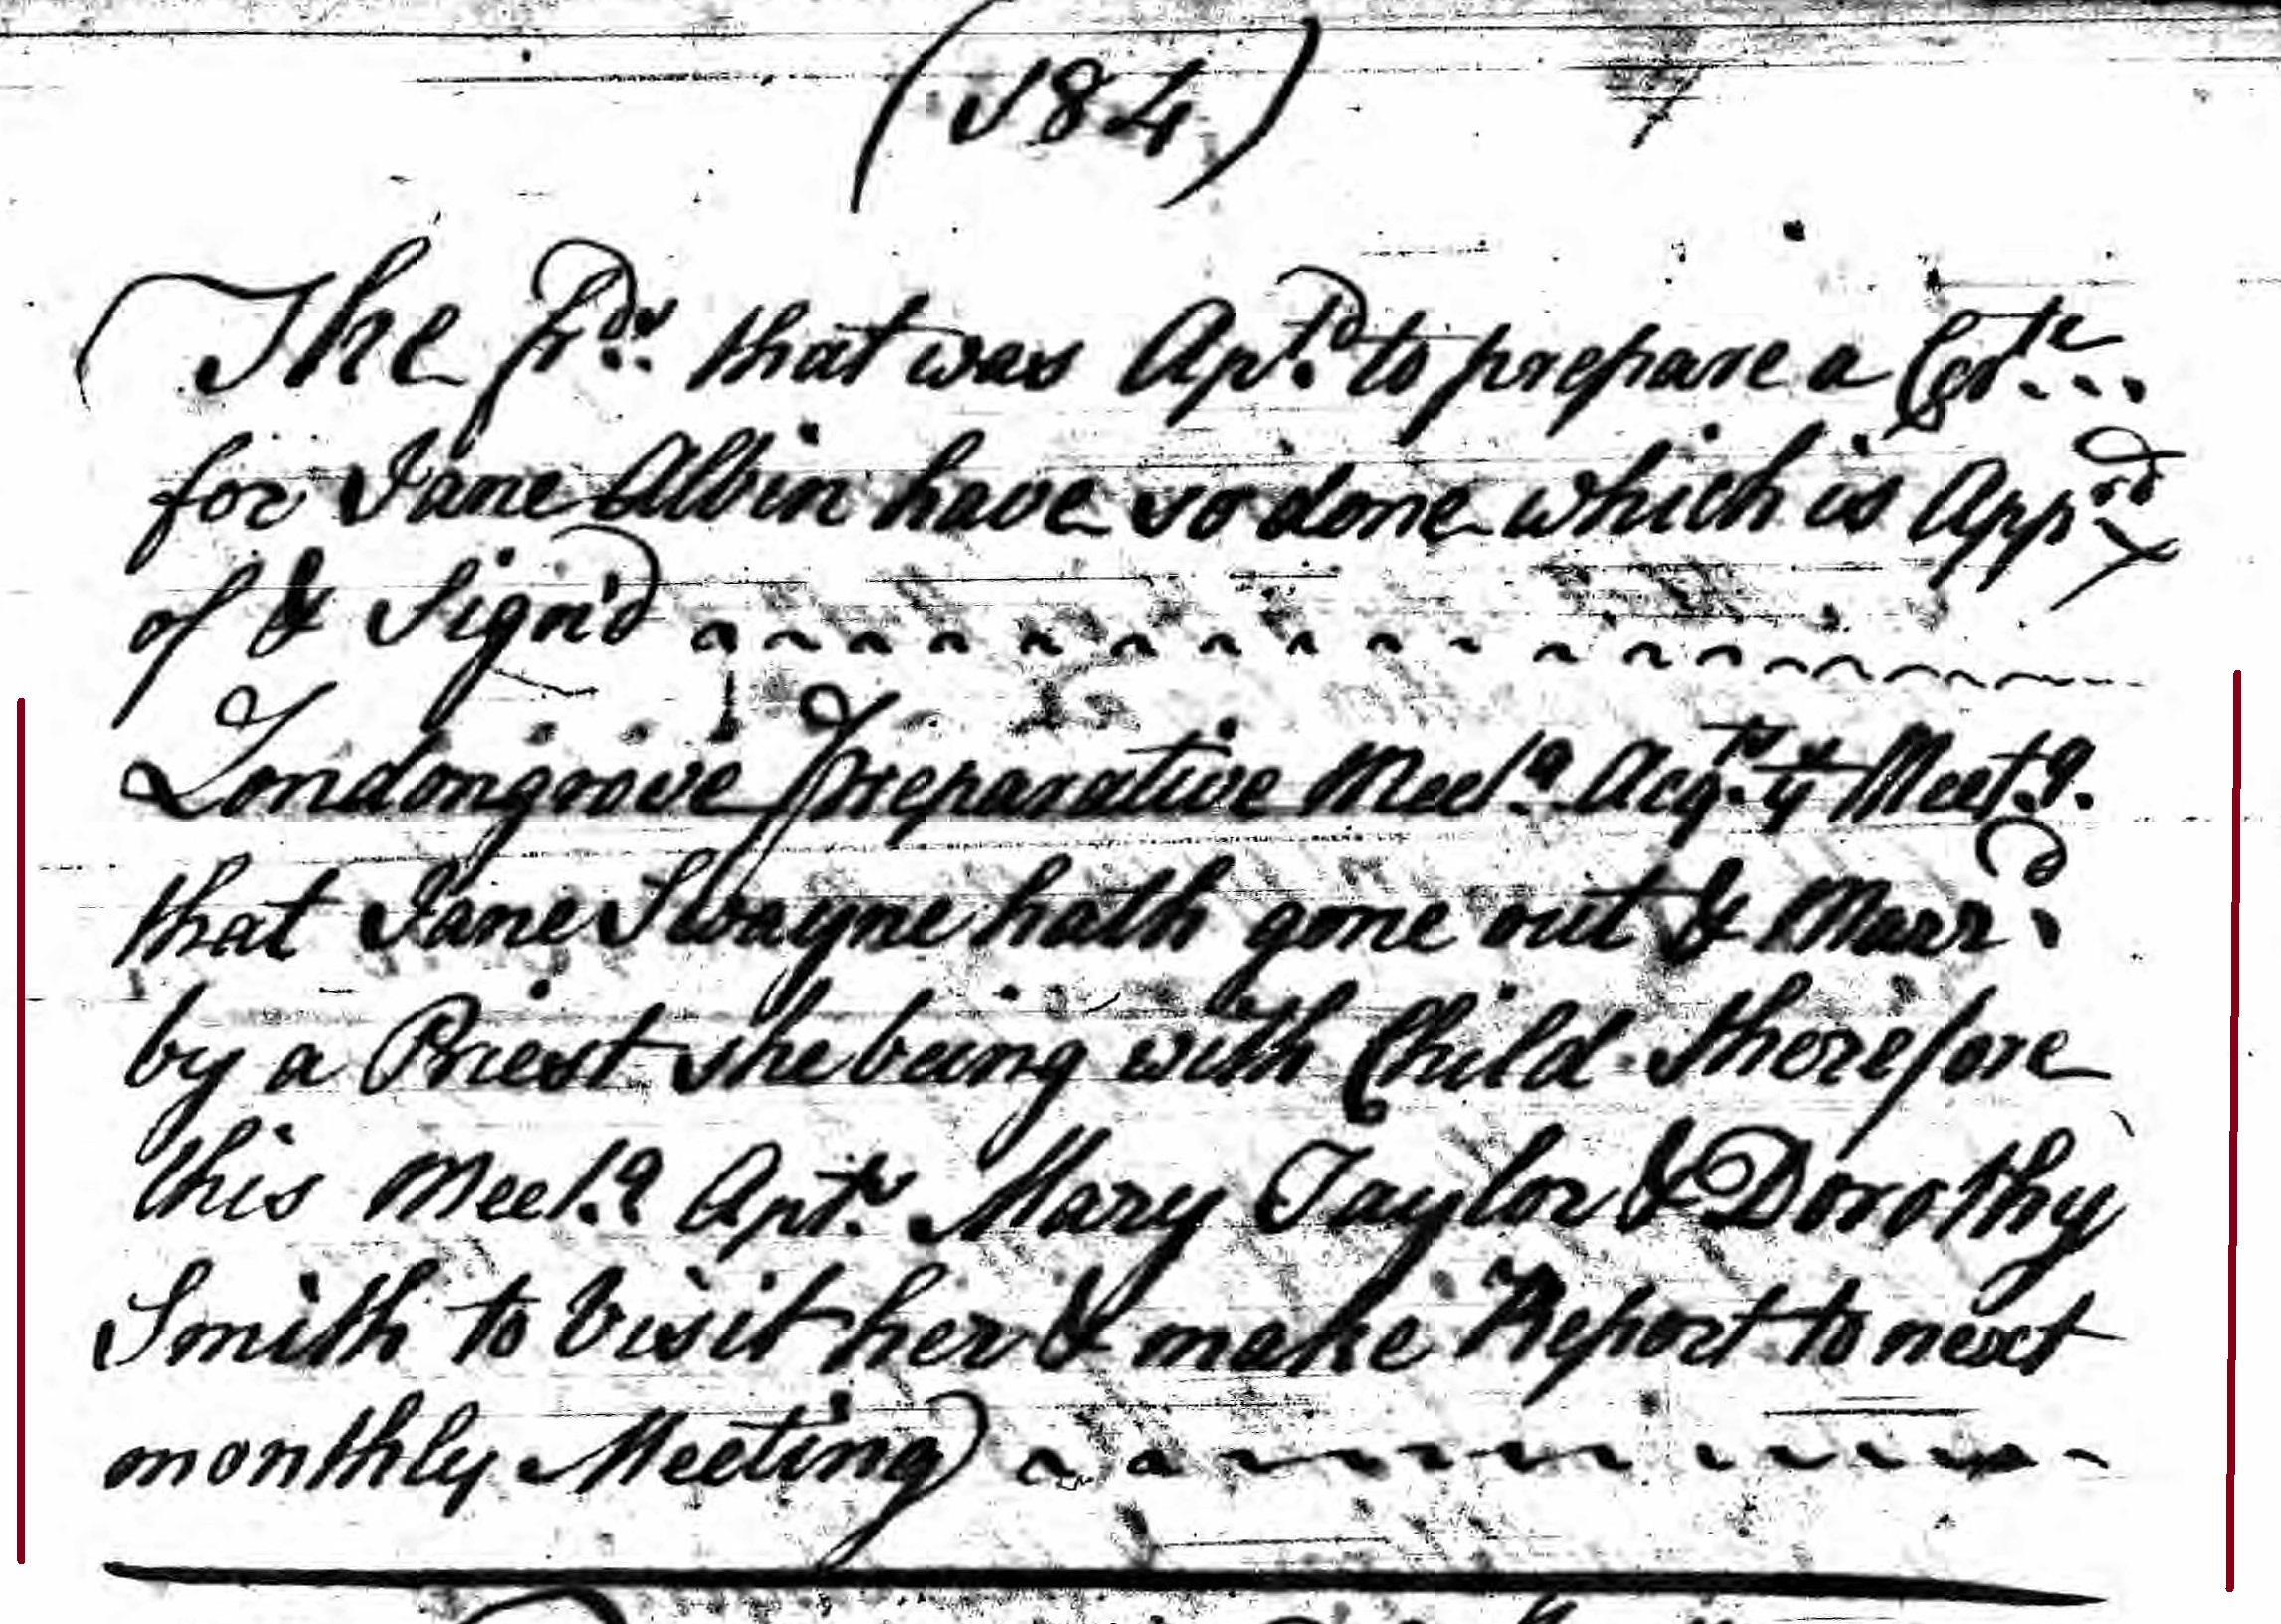 (184)
The Frds. that was Aptd. to prepare a Certe...
for Jane Albin have so done which is Apprd
of & Sign'd
Londongrove Preparative Meetg. Acqts. ye Meetg.
that Jane Swayne hath gone out & Marrd.
by a Priest she being with Child therefore
this Meetg. Apts. Mary Taylor & Dorothy
Smith to Visit her & make Report to next
monthly Meeting